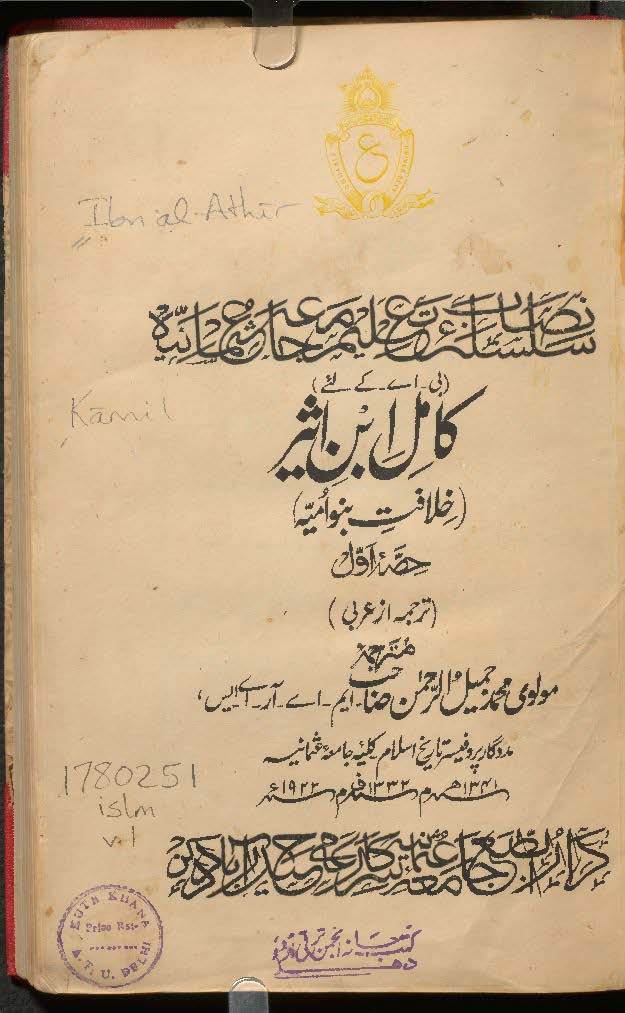 Ibn al-Athīr
سلسلۂ نصاب تعلیم جامعہ عثمانیہ
(بی - اے کے لئے)
Kāmil
کامل ابنِ اثیر
(خلافتِ بنو امیہ)
حصۂ اوّل
(ترجمہ از عربی)
مترجمہ
مولوی محمد جمیل الرحمٰن صاحب ایم - اے - آر - اے - ایس،
مددگار پروفیسر تاریخ اسلام کلیہ جامعۂ عثمانیہ
۱۳۴۱ھ م ۱۳۳۲ف م ۱۹۲۲ء
1780251
islm
v.1
دار الطبع جامعہ عثمانیہ سرکار عالی حیدرآباد دکن
KUTB KHANA
Price Rs:-
A. T. U. DELHI
کتب خانہ انجمن ترقی اردو
دهلی